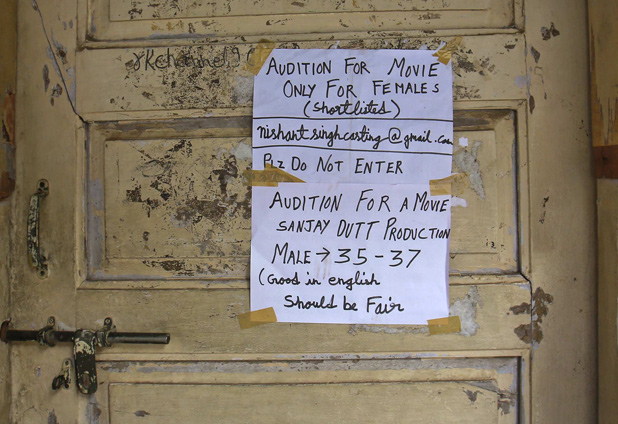 AUDITION FOR MOVIE
ONLY FOR FEMALES
(Shortlisted)
nishantsinghcasting@gmail.com
PLZ DO NOT ENTER
AUDITION FOR A MOVIE
SANJAY DUTT PRODUCTION
MALE → 35-37
(Good in english
Should be Fair